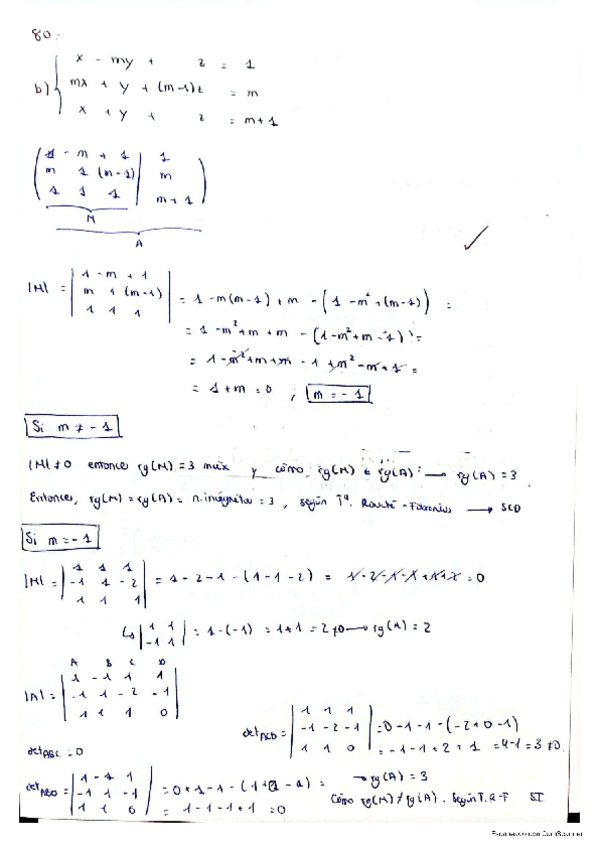 80.
b) { x - my + z = 1
mx + y + (m-1)z = m
x + y + z = m+1
( 1 - m + 1 | 1
m 1 (m-1) | m
1 1 1 | m+1 )
M
A
✓
|M| = | 1 - m + 1
m 1 (m-1)
1 1 1 | = 1 - m(m-1) + m - (1 - m² + (m-1)) =
= 1 - m² + m + m - (1 - m² + m - 1) =
= 1 - m² + m + m - 1 + m² - m + 1 =
= 1 + m = 0 ; m = -1
Si m ≠ -1
|M| ≠ 0 entonces rg(M) = 3 max y como rg(M) ≤ rg(A) → rg(A) = 3
Entonces, rg(M) = rg(A) = n. incógnitas = 3, según Tª Rouché - Frobenius → SCD
Si m = -1
|M| = | 1 1 1
-1 1 -2
1 1 1 | = 1 - 2 - 1 - (1 - 1 - 2) = 1 - 2 - 1 - 1 + 1 + 2 = 0
↳ | 1 1
-1 1 | = 1 - (-1) = 1 + 1 = 2 ≠ 0 → rg(M) = 2
A B C D
|A| = | 1 -1 1 1
-1 1 -2 -1
1 1 1 0 |
det ABC = 0
det ACD = | 1 1 1
-1 -2 -1
1 1 0 | = 0 - 1 - 1 - (-2 + 0 - 1)
= -1 - 1 + 2 + 1 = 4 - 1 = 3 ≠ 0.
det ABD = | 1 -1 1
-1 1 -1
1 1 0 | = 0 + 1 - 1 - (1 + 0 - 1) =
= 1 - 1 - 1 + 1 = 0
→ rg(A) = 3
Como rg(M) ≠ rg(A). Según T. R-F SI